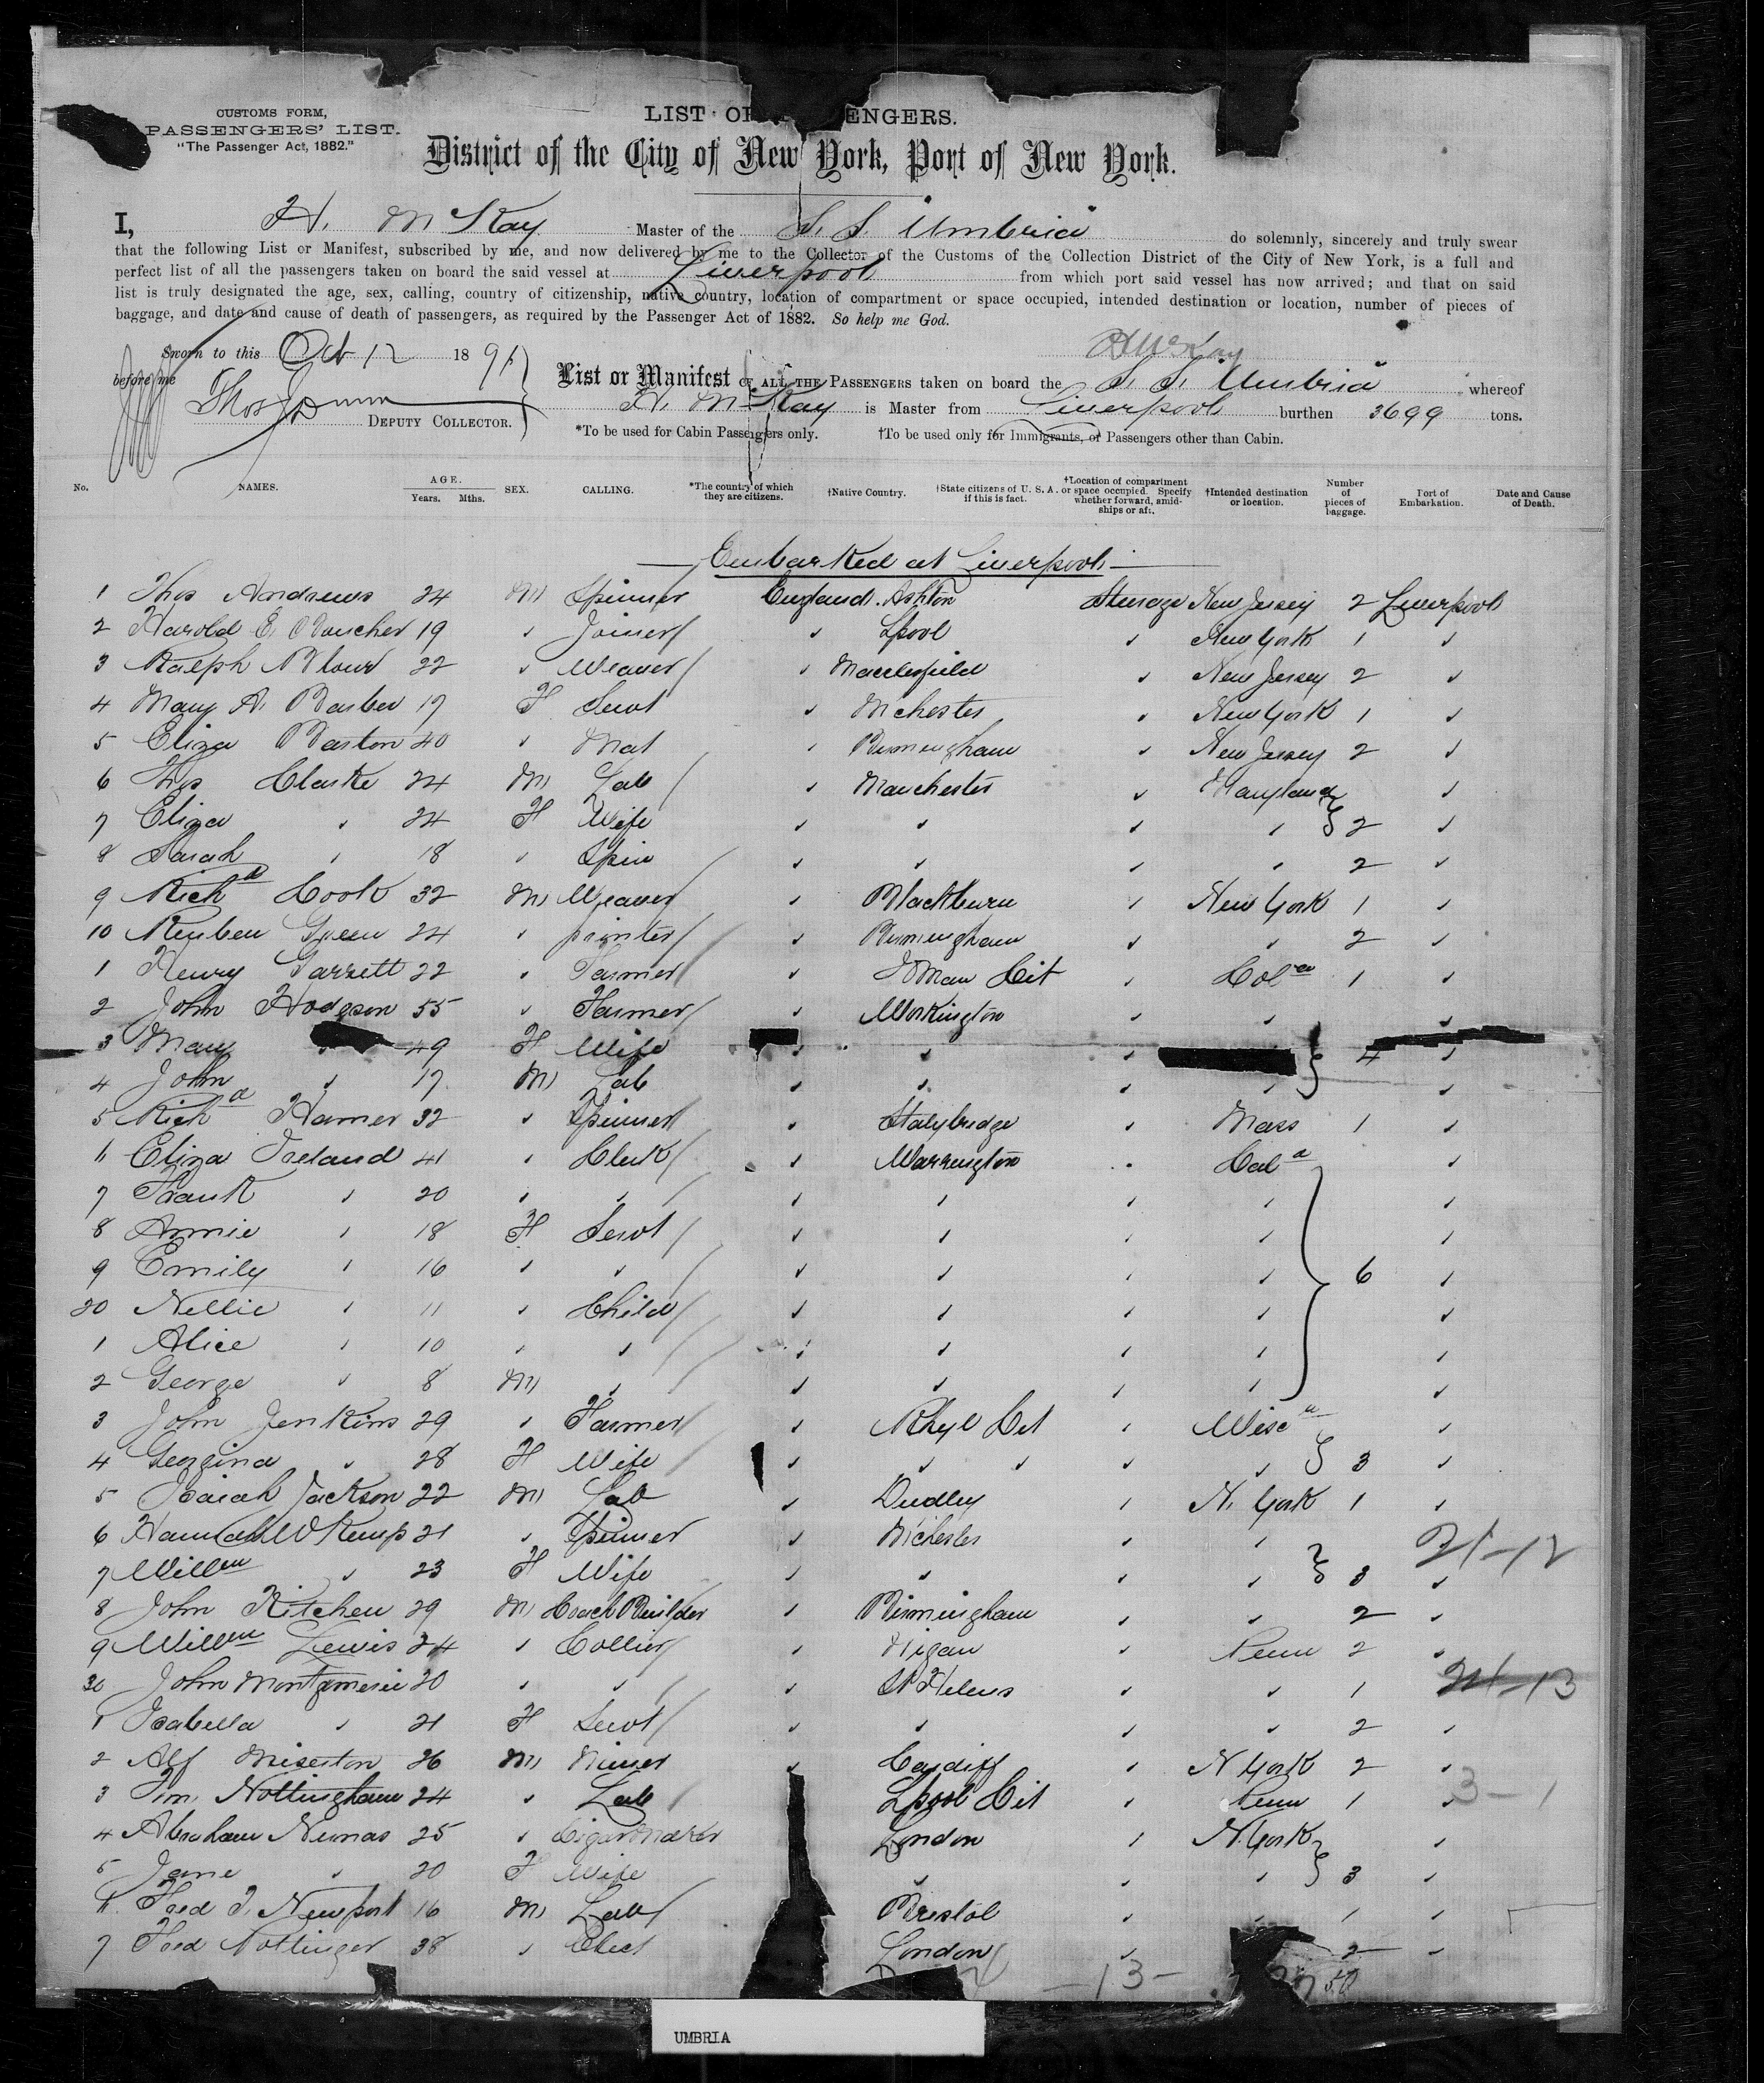 CUSTOMS FORM,
PASSENGERS' LIST.
"The Passenger Act, 1882."
LIST OF ENGERS.
District of the City of New York, Port of New York.
I, H. McKay Master of the S. S. Umbria do solemnly, sincerely and truly swear
that the following List or Manifest, subscribed by me, and now delivered by me to the Collector of the Customs of the Collection District of the City of New York, is a full and
perfect list of all the passengers taken on board the said vessel at Liverpool from which port said vessel has now arrived; and that on said
list is truly designated the age, sex, calling, country of citizenship, native country, location of compartment or space occupied, intended destination or location, number of pieces of
baggage, and date and cause of death of passengers, as required by the Passenger Act of 1882. So help me God.
Sworn to this Oct 12 1891
H McKay
before me
DEPUTY COLLECTOR.
List or Manifest OF ALL THE PASSENGERS taken on board the S. S. Umbria whereof
H. McKay is Master from Liverpool burthen 3699 tons.
*To be used for Cabin Passengers only. †To be used only for Immigrants, or Passengers other than Cabin.
No. NAMES. AGE. Years. Mths. SEX. CALLING. *The country of which they are citizens. †Native Country. †State citizens of U. S. A. if this is fact. †Location of compartment or space occupied. Specify whether forward, amidships or aft. †Intended destination or location. Number of pieces of baggage. Port of Embarkation. Date and Cause of Death.
Embarked at Liverpool
1 Thos Andrews 24 M Spinner England Ashton Steerage New Jersey 2 Liverpool
2 Harold E. Boucher 19 Joiner Lpool New York 1
3 Ralph 22 Weaver Macclesfield New Jersey 2
4 Mary A. Barber 17 F Servt Mchester New York 1
5 Eliza Barton 40 Mat Birmingham New Jersey 2
6 Thos Clarke 24 M Lab Manchester Maryland
7 Eliza 24 F Wife 2
8 Sarah 18 Spin 2
9 Richd Cook 32 M Weaver Blackburn New York 1
10 Reuben Green 24 printer Birmingham 2
1 Henry Garrett 22 Farmer I Man Cit 1
2 John Hodgson 55 Farmer Workington
3 Mary 49 F Wife 4
4 John 17 M Lab
5 Richd Hamer 32 Spinner Stalybridge Mass 1
6 Eliza Ireland 41 Clerk Warrington Cala
7 Frank 20
8 Annie 18 F Servt
9 Emily 16 6
20 Nellie 11 Child
1 Alice 10
2 George 8 M
3 John Jenkins 29 Farmer Rhyl Cit Wisc
4 Georgina 28 F Wife 3
5 Isaiah Jackson 22 M Lab Dudley N. York 1
6 Hannah Kemp 21 Spinner Mchester
7 Willm 23 F Wife 3
8 John Kitchen 29 M Coach Builder Birmingham 2
9 Willm Lewis 24 Collier Wigan Penn 2
30 John Montgomerie 20 St Helens 1
1 Isabella 21 F Servt 2
2 Alf Miserton 26 M Miner Cardiff N York 2
3 Nottingham 24 Lab Lpool Cit Penn 1
4 Abraham 25 Cigarmaker London N. York
5 Jane 20 F Wife 3
6 Fred T. Newport 16 M Lab Bristol 1
7 Fred Nottinger 38 Elect London 2
-13-
UMBRIA